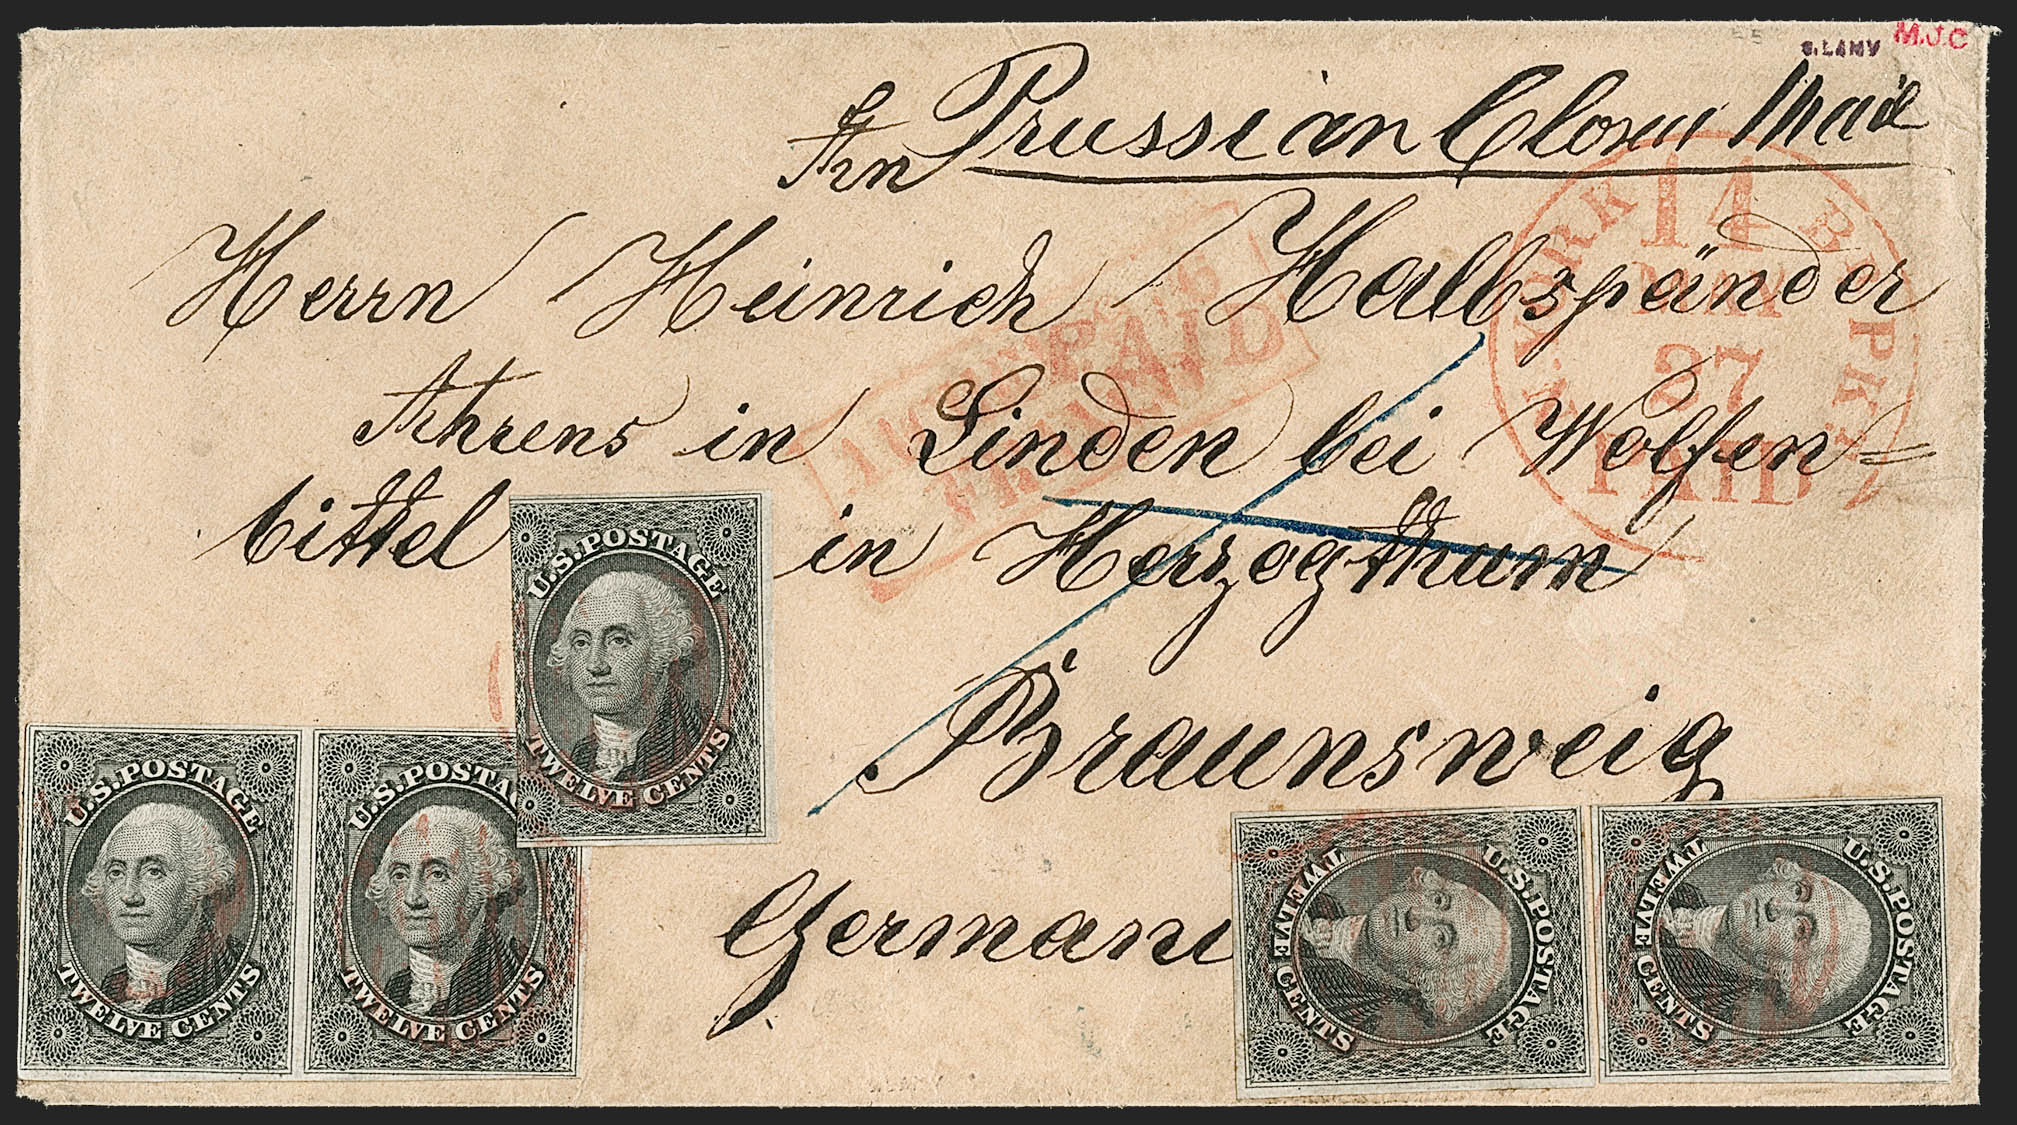 Prussian Closed Mail
An
Herrn Heinrich Halbspänder
Ahrens in Linden bei Wolfen=
bittel in Herzogthum
Braunsweig
Germani
S.LAMY
M.J.C
N. YORK BR PKT
14
MAY
27
PAID
PAID
U.S.POSTAGE
TWELVE CENTS
U.S.POSTAGE
TWELVE CENTS
U.S.POSTA
TWELVE CENTS
U.S.POSTAGE
TWELVE CENTS
U.S.POSTAGE
TWELVE CENTS